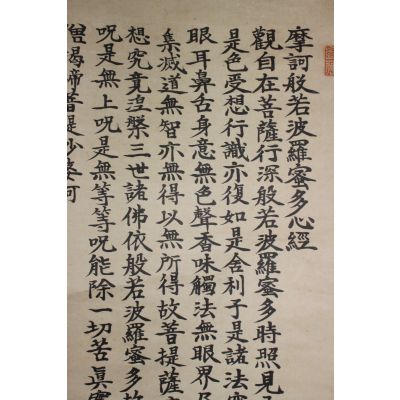 摩訶般若波羅蜜多心經
觀自在菩薩行深般若波羅蜜多時照見
是色受想行識亦復如是舍利子是諸法
眼耳鼻舌身意無色聲香味觸法無眼界
集滅道無智亦無得以無所得故菩提薩
想究竟涅槃三世諸佛依般若波羅蜜多故
呪是無上呪是無等等呪能除一切苦真實
僧揭諦菩提娑婆訶